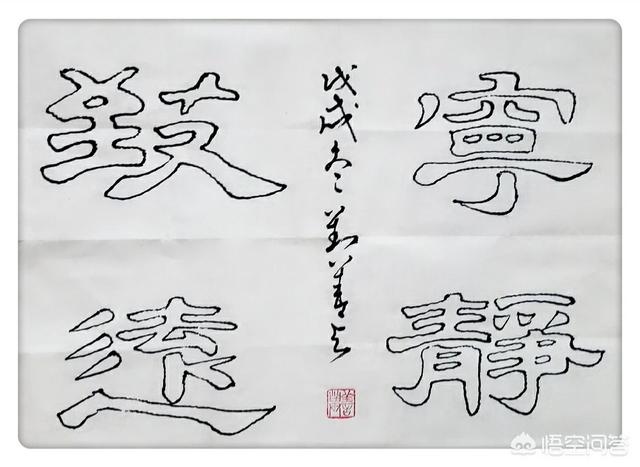 寧靜
致遠
戊戌冬
悟空问答